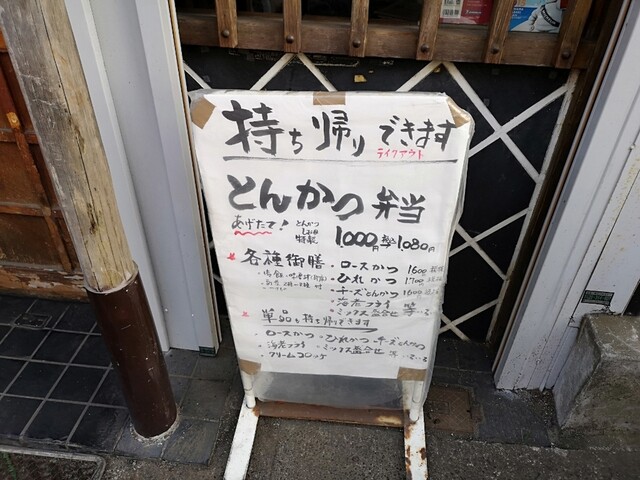 持ち帰りできます
テイクアウト
とんかつ弁当
あげたて!
とんかつ
特製
1000円 税込 1,080円
各種御膳
・ロースかつ 1600
・ひれかつ 1700
・チーズとんかつ 1600
・海老フライ
・ミックス盛合せ 等
単品も持ち帰りできます
・ロースかつ ・ひれかつ ・チーズとんかつ
・海老フライ ・ミックス盛合せ 等
・クリームコロッケ